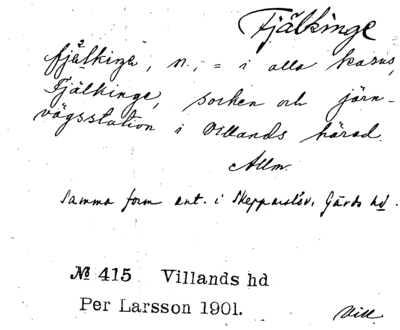 Fjälkinge
fjälkiŋa, n., = i alla kasus,
Fjälkinge, socken och järn-
vägsstation i Villands härad.
Allm.
Samma form ant. i Skepparslöv, Gärds hd.
№ 415 Villands hd
Per Larsson 1901.
Vill